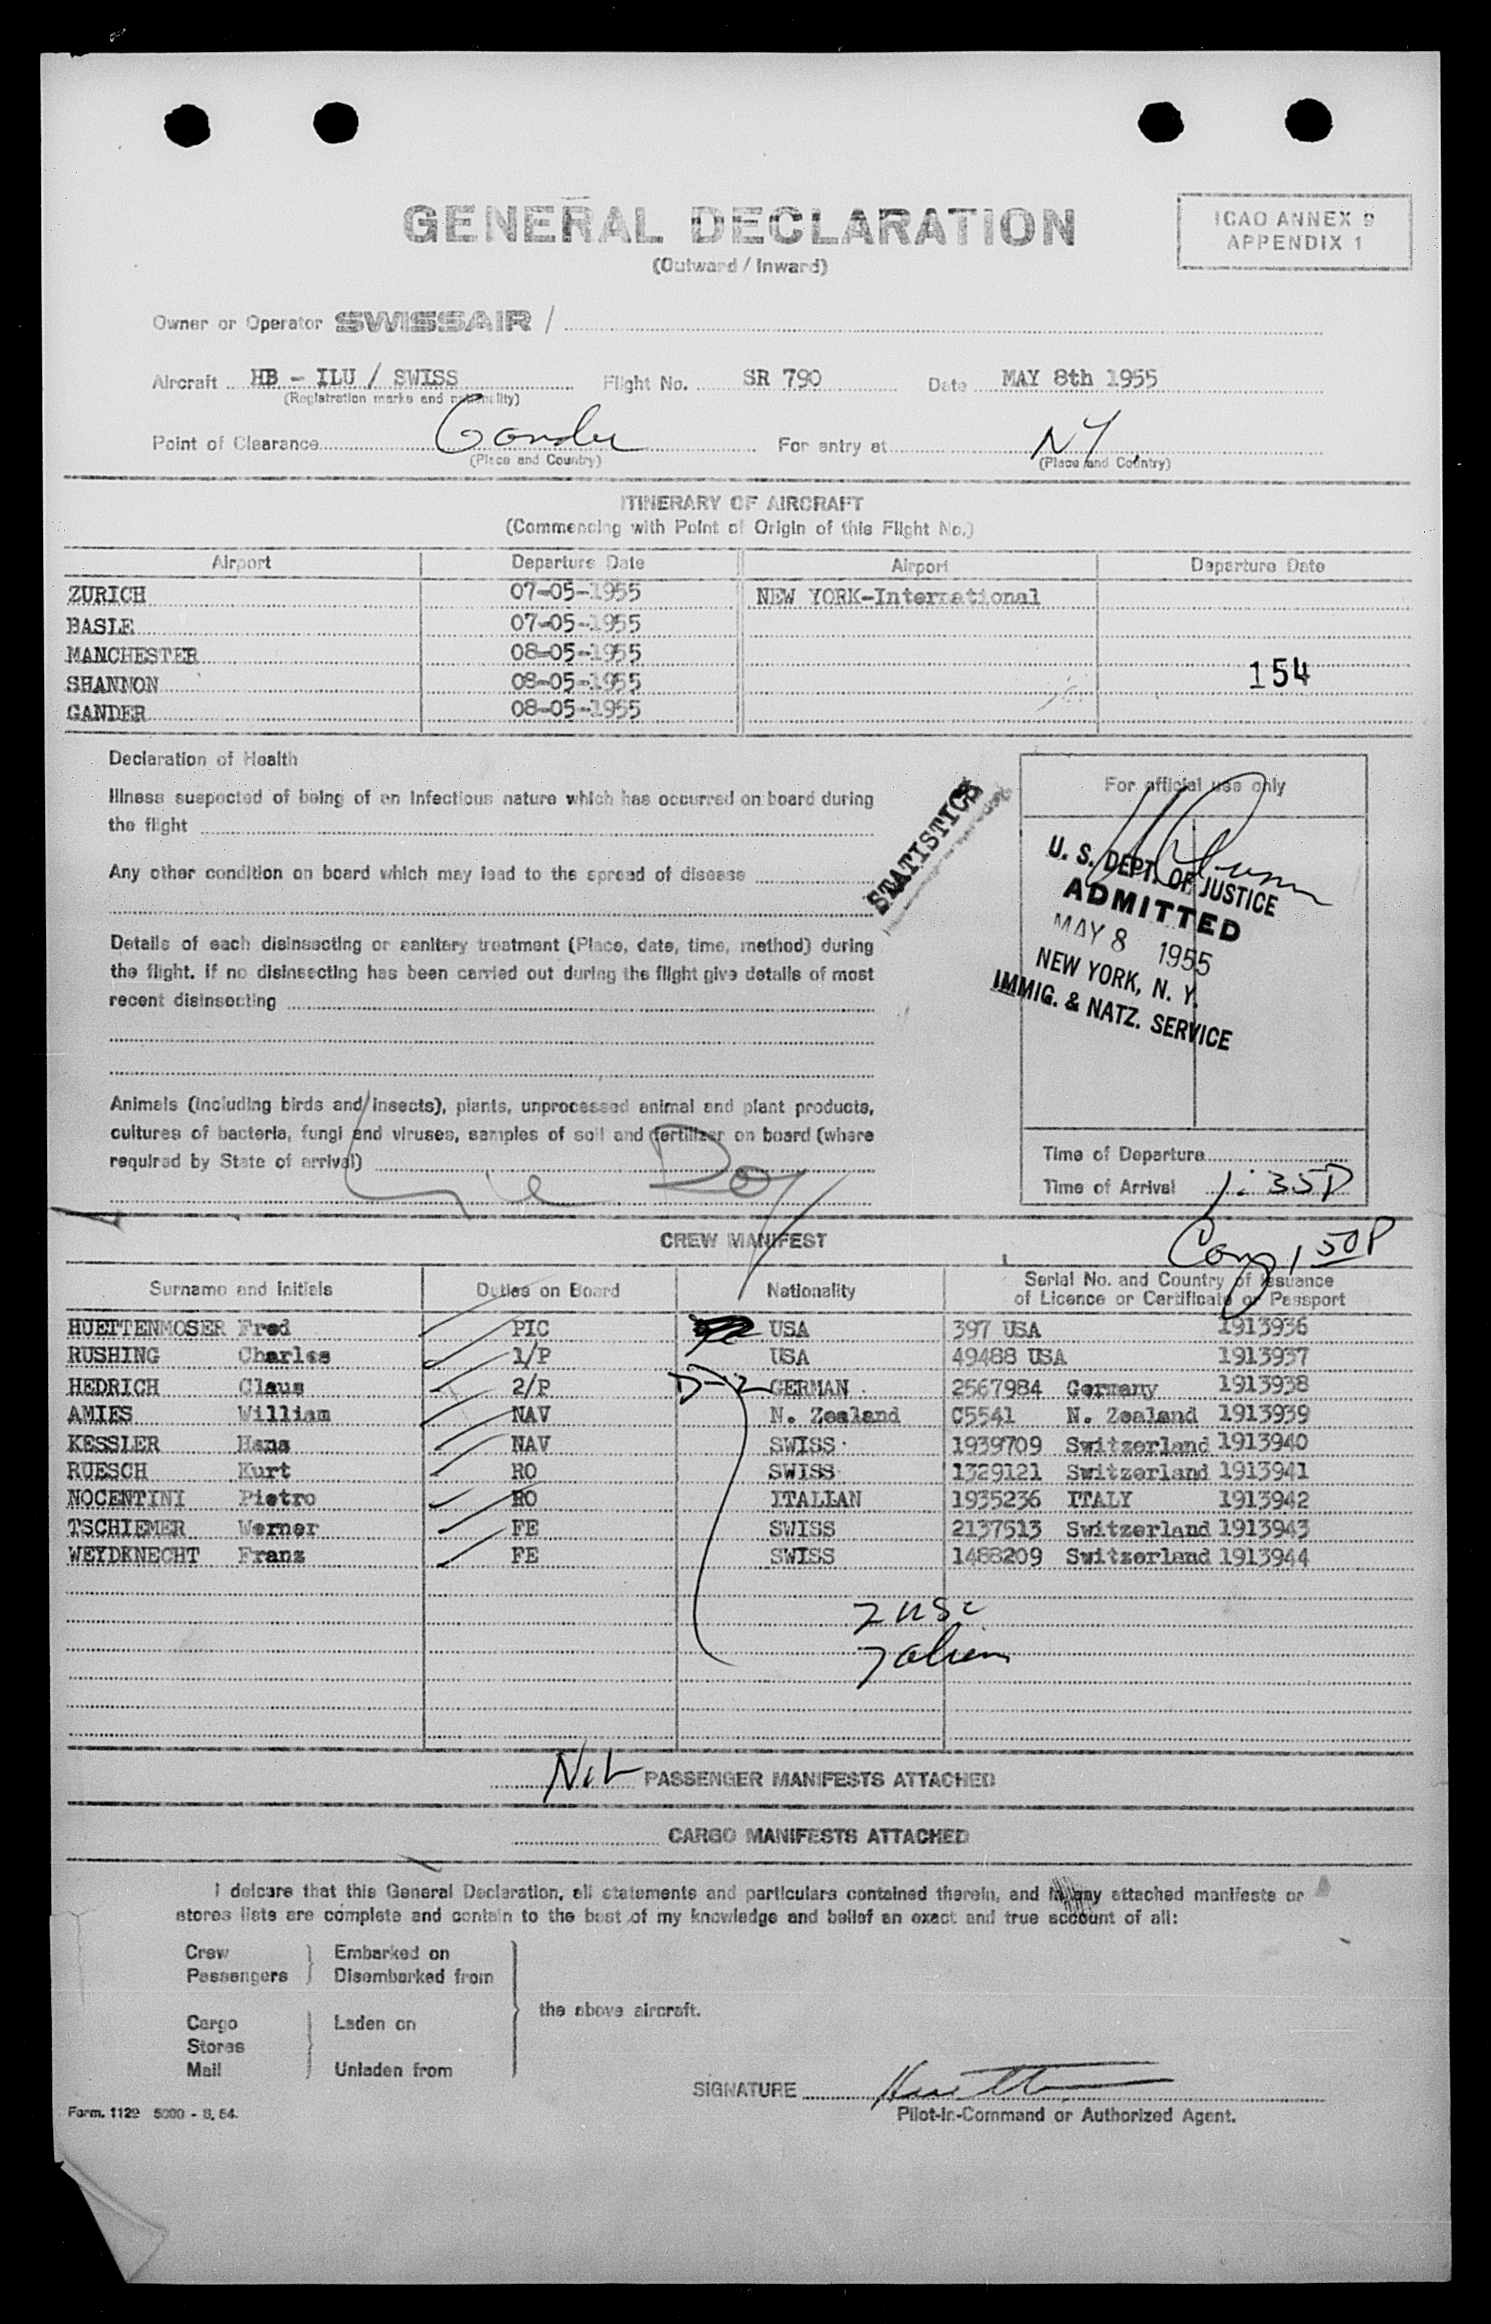 GENERAL DECLARATION
(Outward / Inward)
ICAO ANNEX 9
APPENDIX 1
Owner or Operator SWISSAIR /
Aircraft HB - ILU / SWISS Flight No. SR 790 Date MAY 8th 1955
(Registration marks and nationality)
Point of Clearance Gander For entry at NY
(Place and Country) (Place and Country)
ITINERARY OF AIRCRAFT
(Commencing with Point of Origin of this Flight No.)
Airport Departure Date Airport Departure Date
ZURICH 07-05-1955 NEW YORK-International
BASLE 07-05-1955
MANCHESTER 08-05-1955
SHANNON 08-05-1955 154
GANDER 08-05-1955
Declaration of Health
Illness suspected of being of an infectious nature which has occurred on board during
the flight
Any other condition on board which may lead to the spread of disease
Details of each disinsecting or sanitary treatment (Place, date, time, method) during
the flight. If no disinsecting has been carried out during the flight give details of most
recent disinsecting
Animals (including birds and insects), plants, unprocessed animal and plant products,
cultures of bacteria, fungi and viruses, samples of soil and fertilizer on board (where
required by State of arrival)
STATISTICS
For official use only
U. S. DEPT. OF JUSTICE
ADMITTED
MAY 8 1955
NEW YORK, N. Y.
IMMIG. & NATZ. SERVICE
Time of Departure
Time of Arrival 1:35P
150P
CREW MANIFEST
Surname and Initials Duties on Board Nationality Serial No. and Country of Issuance
of Licence or Certificate or Passport
HUETTENMOSER Fred PIC USA 397 USA 1913936
RUSHING Charles 1/P USA 49488 USA 1913937
HEDRICH Claus 2/P GERMAN 2567984 Germany 1913938
AMIES William NAV N. Zealand C5541 N. Zealand 1913939
KESSLER Hans NAV SWISS 1939709 Switzerland 1913940
RUESCH Kurt RO SWISS 1329121 Switzerland 1913941
NOCENTINI Pietro RO ITALIAN 1935236 ITALY 1913942
TSCHIEMER Werner FE SWISS 2137513 Switzerland 1913943
WEYDKNECHT Franz FE SWISS 1488209 Switzerland 1913944
2 usc
7 alien
Nil PASSENGER MANIFESTS ATTACHED
CARGO MANIFESTS ATTACHED
I delcare that this General Declaration, all statements and particulars contained therein, and in any attached manifests or
stores lists are complete and contain to the best of my knowledge and belief an exact and true account of all:
Crew Embarked on
Passengers Disembarked from
the above aircraft.
Cargo Laden on
Stores
Mail Unladen from
SIGNATURE
Pilot-in-Command or Authorized Agent.
Form. 1129 5000 - 8. 54.